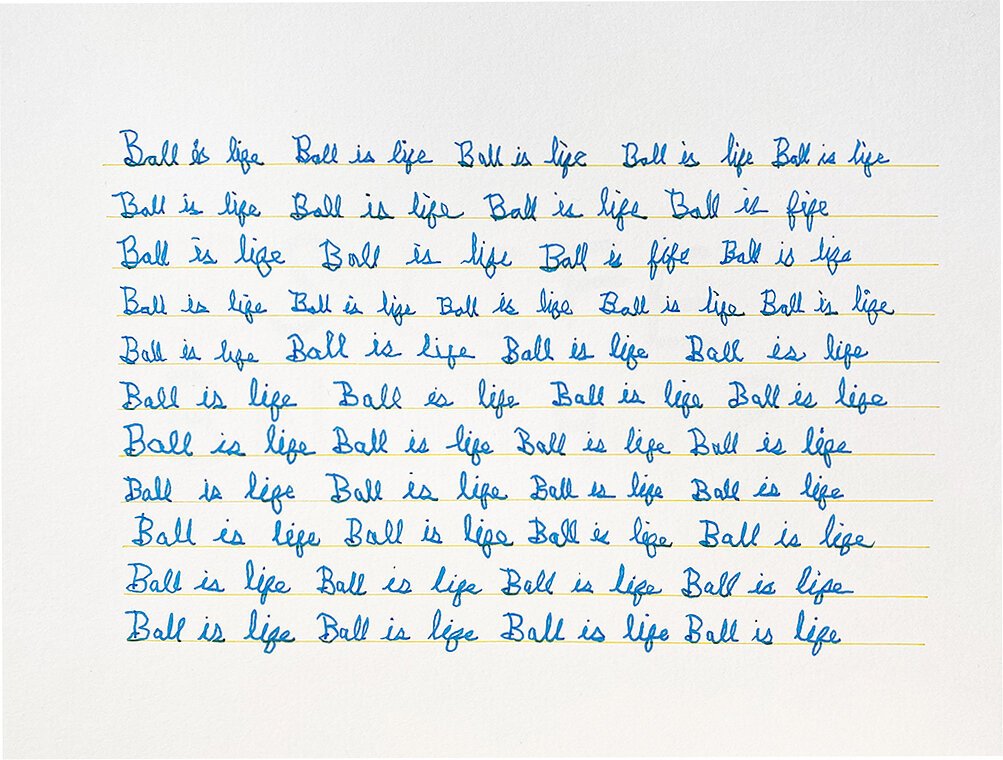 Ball is life Ball is life Ball is life Ball is life Ball is life
Ball is life Ball is life Ball is life Ball is fife
Ball is life Ball is life Ball is fife Ball is life
Ball is life Ball is life Ball is life Ball is life Ball is life
Ball is life Ball is life Ball is life Ball is life
Ball is life Ball is life Ball is life Ball is life
Ball is life Ball is life Ball is life Ball is life
Ball is life Ball is life Ball is life Ball is life
Ball is life Ball is life Ball is life Ball is life
Ball is life Ball is life Ball is life Ball is life
Ball is life Ball is life Ball is life Ball is life